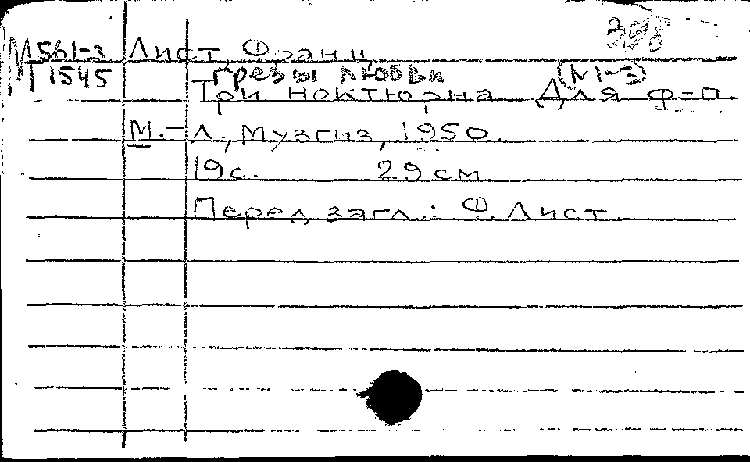 М561-3 Лист, Франц
МГ 1545 Грезы любви (№1-3)
Три ноктюрна Для ф-п.
М.-Л, Музгиз, 1950.
19с. 29см
Перед загл.: Ф. Лист.